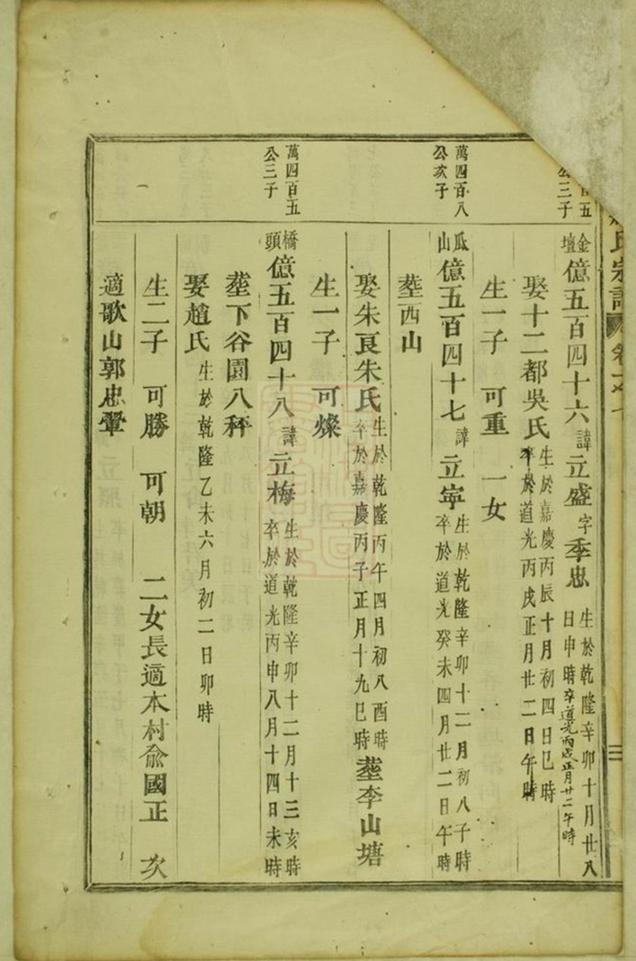 氏宗譜 卷之七
三
百五
公三子
金壇 億五百四十六 諱 立盛 字 季忠 生於乾隆辛卯十月廿八
日申時卒道光丙戌正月廿二午時
娶十二都吳氏 生於嘉慶丙辰十月初四日巳時
卒於道光丙戌正月廿二日午時
生一子 可重 一女
萬四百八
公亥子
瓜山 億五百四十七 諱 立寧 生於乾隆辛卯十二月初八子時
卒於道光癸未四月廿二日午時
塟西山
娶朱㫰朱氏 生於乾隆丙午四月初八酉時
卒於嘉慶丙子正月十九巳時 塟李山塘
生一子 可燦
萬四百五
公三子
橋頭 億五百四十八 諱 立梅 生於乾隆辛卯十二月十三亥時
卒於道光丙申八月十四日未時
塟下谷園八秤
娶趙氏 生於乾隆乙未六月初二日卯時
生二子 可勝 可朝 二女長適本村俞國正 次
適歌山郭忠暈